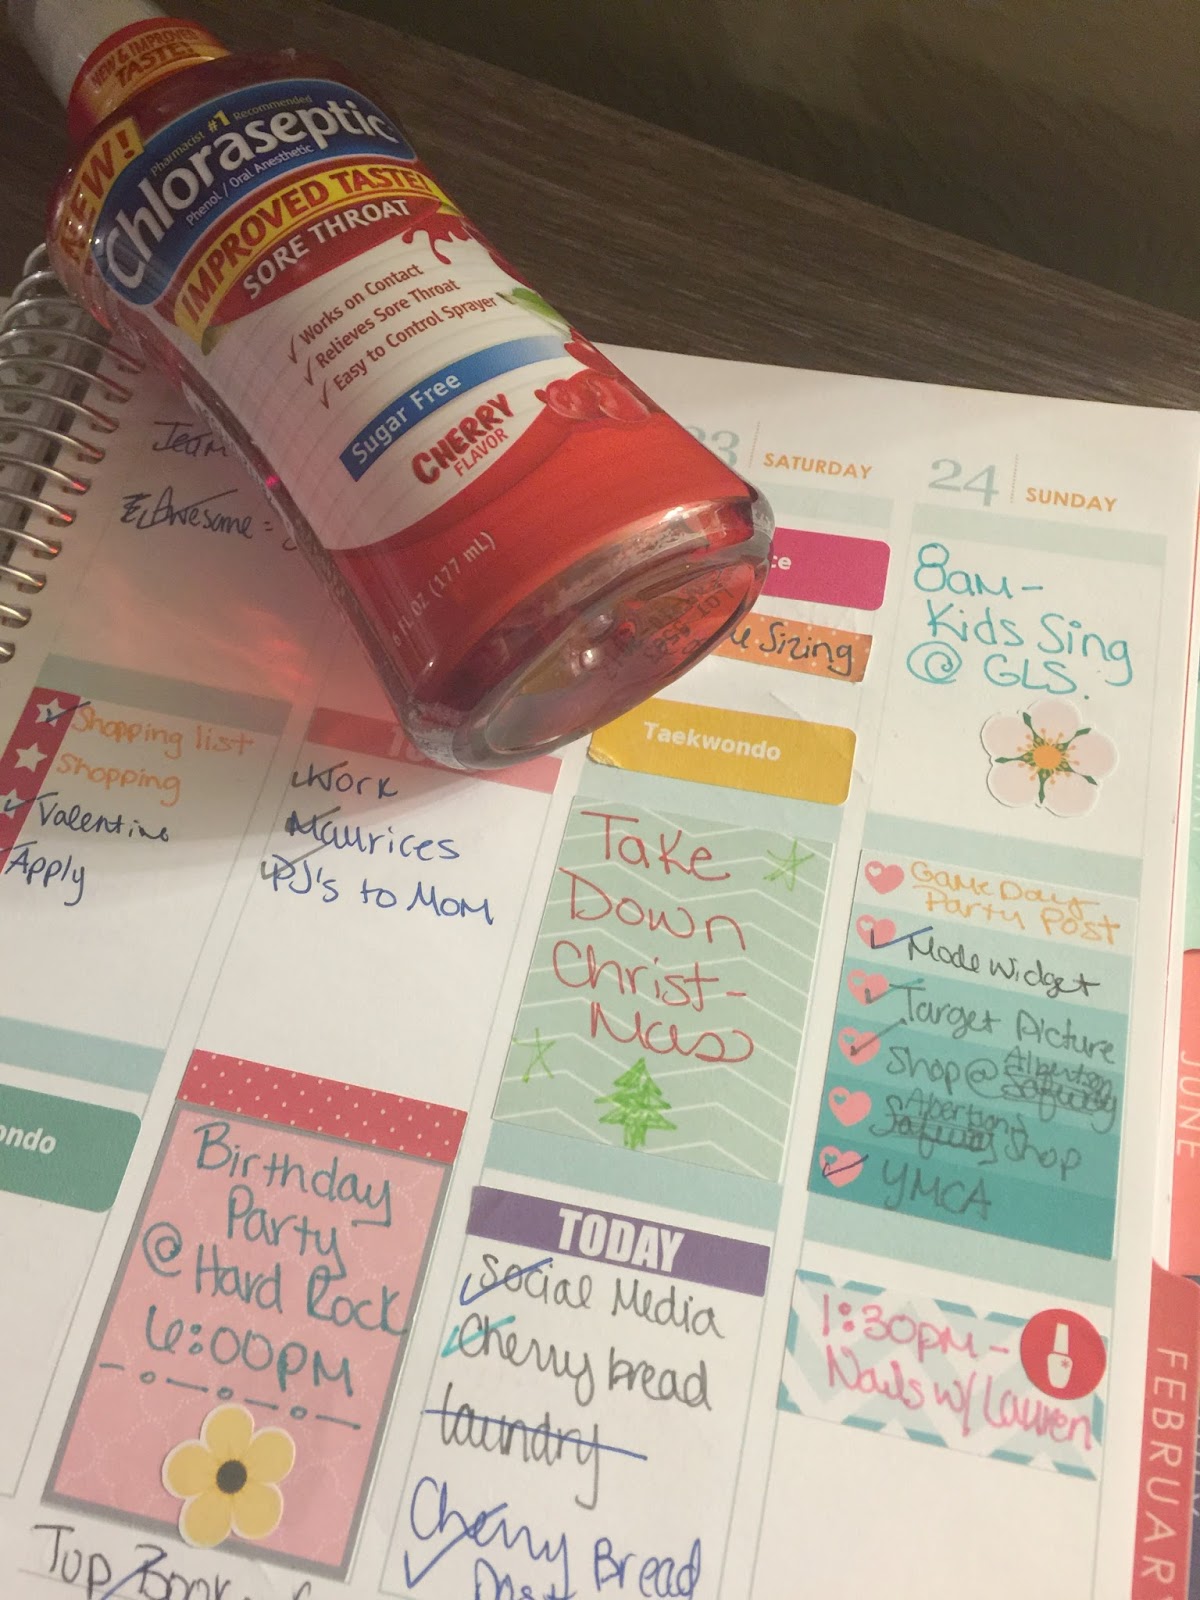 NEW & IMPROVED
TASTE!
NEW!
Pharmacist #1 Recommended
Chloraseptic
Phenol / Oral Anesthetic
IMPROVED TASTE!
SORE THROAT
✓ Works on Contact
✓ Relieves Sore Throat
✓ Easy to Control Sprayer
Sugar Free
CHERRY
FLAVOR
6 FL OZ (177 mL)
LOT
Team
Awesome =
Shopping list
Shopping
Valentine
Apply
Work
Maurices
PJ's to Mom
ondo
Birthday
Party
@ Hard Rock
6:00PM
Top Book
23 SATURDAY
ce
Sizing
Taekwondo
Take
Down
Christ-
mas
TODAY
Social Media
Cherry bread
laundry
Cherry Bread
Post
24 SUNDAY
8am-
Kids Sing
@ GLS.
Game Day
Party Post
Mode Widget
Target Picture
Shop @ Albertson
Safeway
Albertsons
Safeway Shop
YMCA
1:30pm -
Nails w/ Lauren
JUNE
FEBRUARY